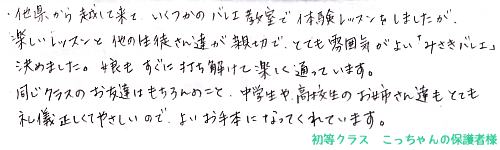 ・他県から越して来て、いくつかのバレエ教室で体験レッスンをしましたが、
楽しいレッスンと他の生徒さん達が親切で、とても雰囲気がよい「みさきバレエ」に
決めました。娘もすぐに打ち解けて楽しく通っています。
同じクラスのお友達はもちろんのこと、中学生や高校生のお姉さん達もとても
礼儀正しくてやさしいので、よいお手本になってくれています。
初等クラス こっちゃんの保護者様